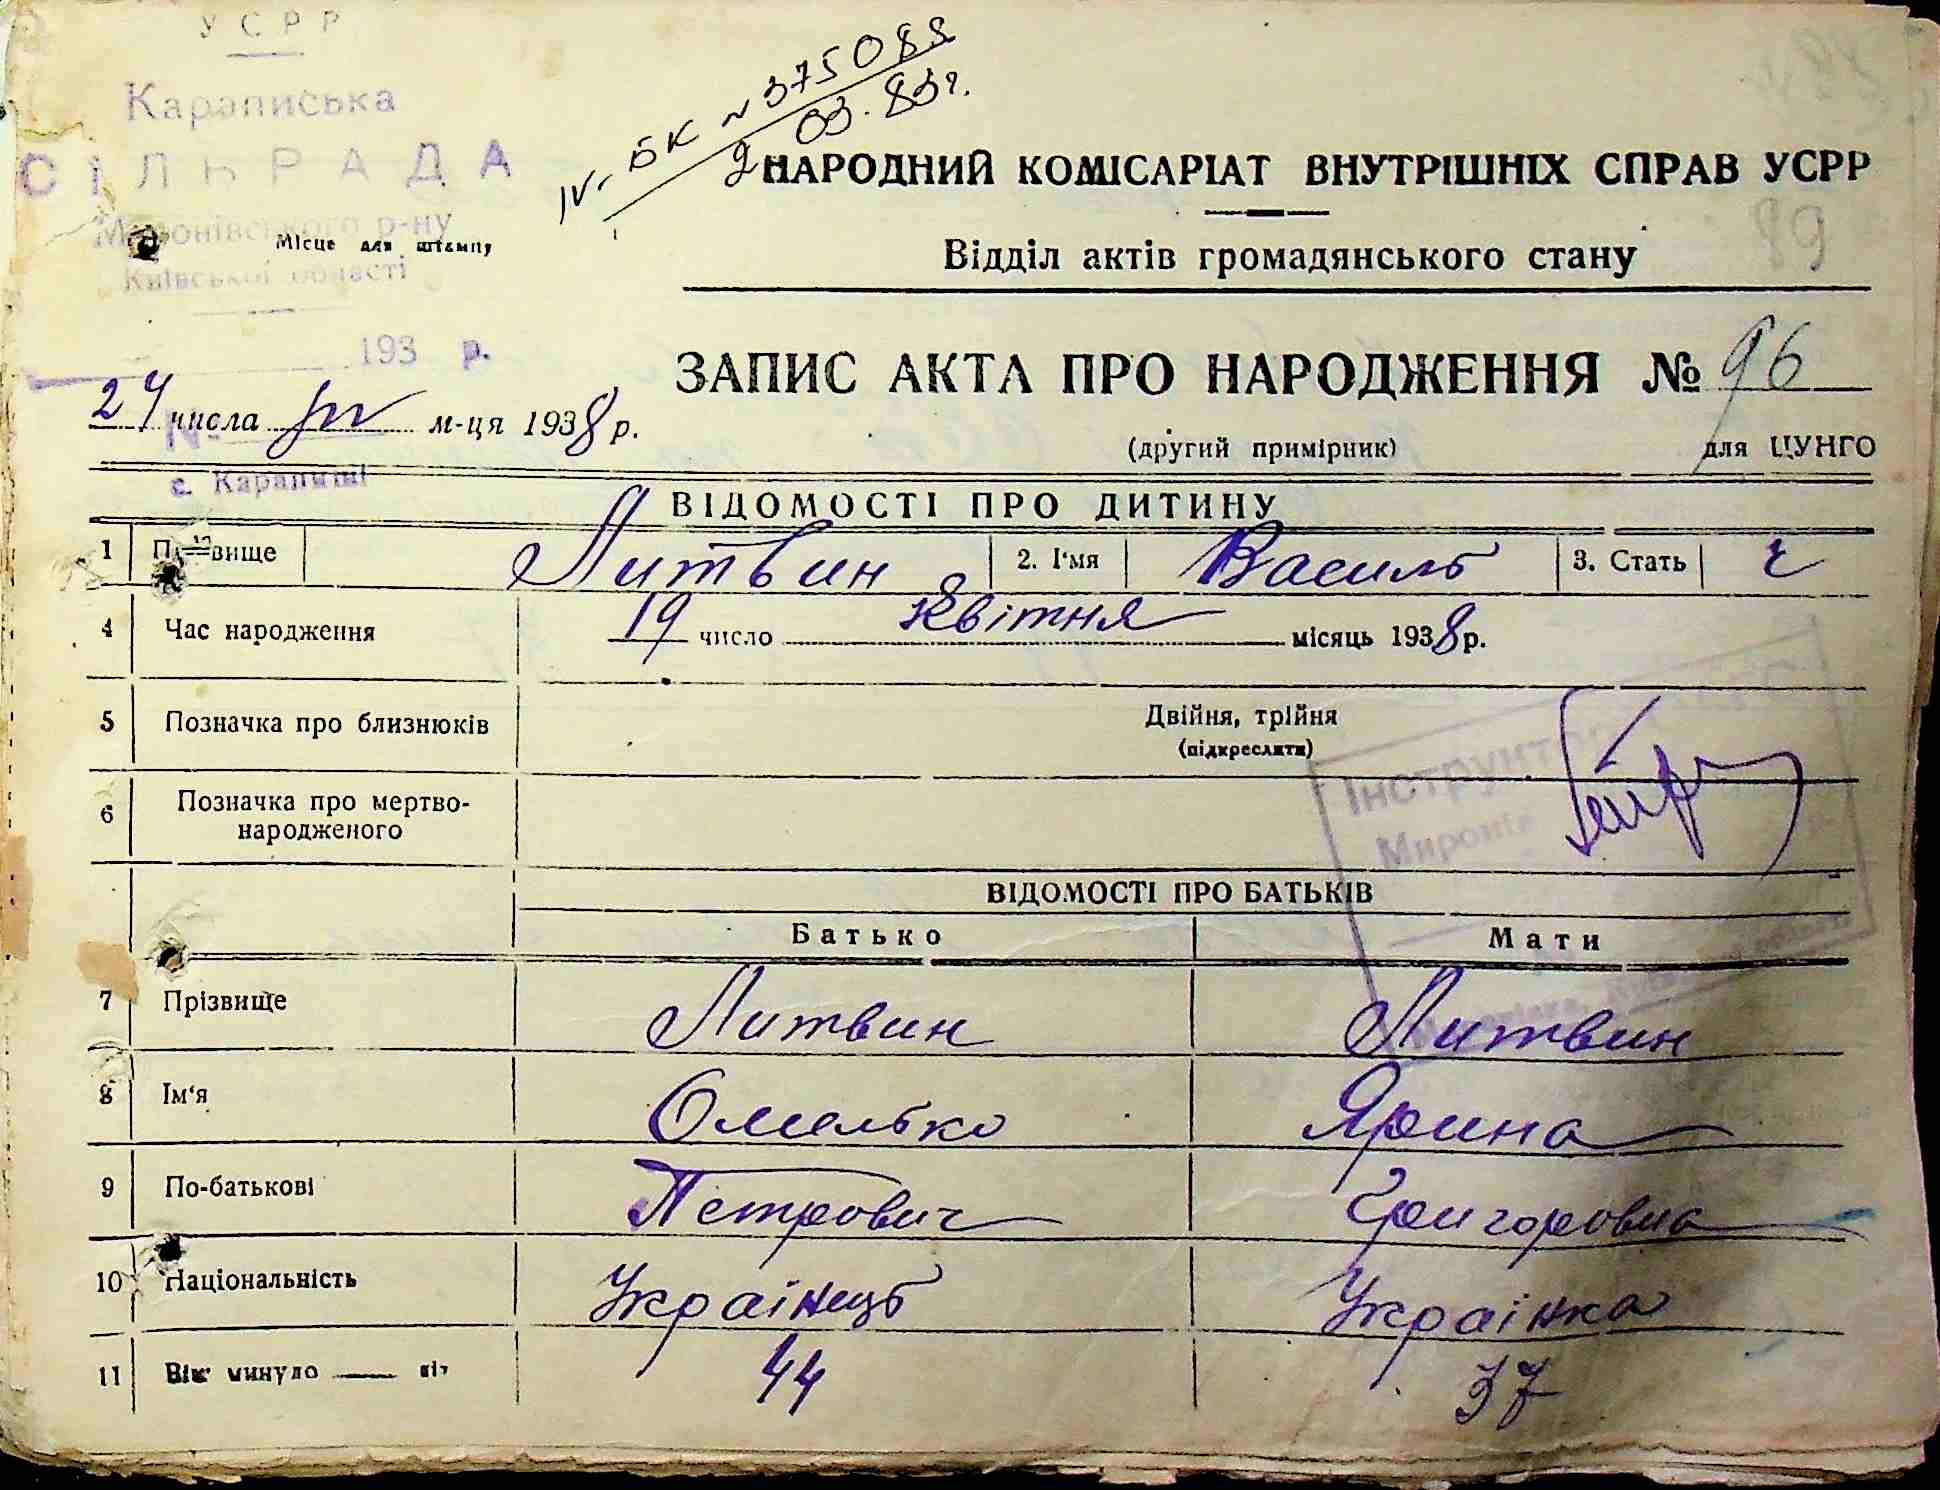 УСРР
Караписька
СІЛЬРАДА
Миронівського р-ну
Київської області
Місце для штампу
193 р.
IV-БК N 375088
2 03.83г.
НАРОДНИЙ КОМІСАРІАТ ВНУТРІШНІХ СПРАВ УСРР
Відділ актів громадянського стану
89
ЗАПИС АКТА ПРО НАРОДЖЕННЯ № 96
(другий примірник) для ЦУНГО
24 числа IV м-ця 1938 р.
№
с. Карапиші
ВІДОМОСТІ ПРО ДИТИНУ
1 Прізвище Литвин 2. І'мя Василь 3. Стать ч
4 Час народження 19 число Квітня місяць 1938 р.
5 Позначка про близнюків Двійня, трійня
(підкреслити)
Інструктор
Миронів
6 Позначка про мертво-
народженого
ВІДОМОСТІ ПРО БАТЬКІВ
Батько Мати
7 Прізвище Литвин Литвин
8 Ім'я Омелько Ярина
9 По-батькові Петрович Григоровна
10 Національність Українець Українка
11 Вік минуло літ 44 37